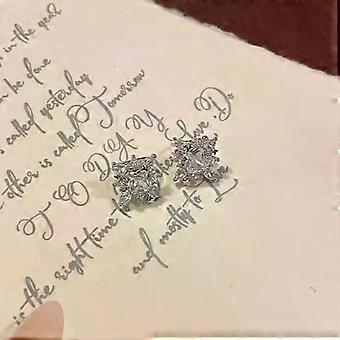 in the year
n be done
s called yesterday
other is called Tomorrow
TODAY
is the right time to Love Do
and mostly to Live